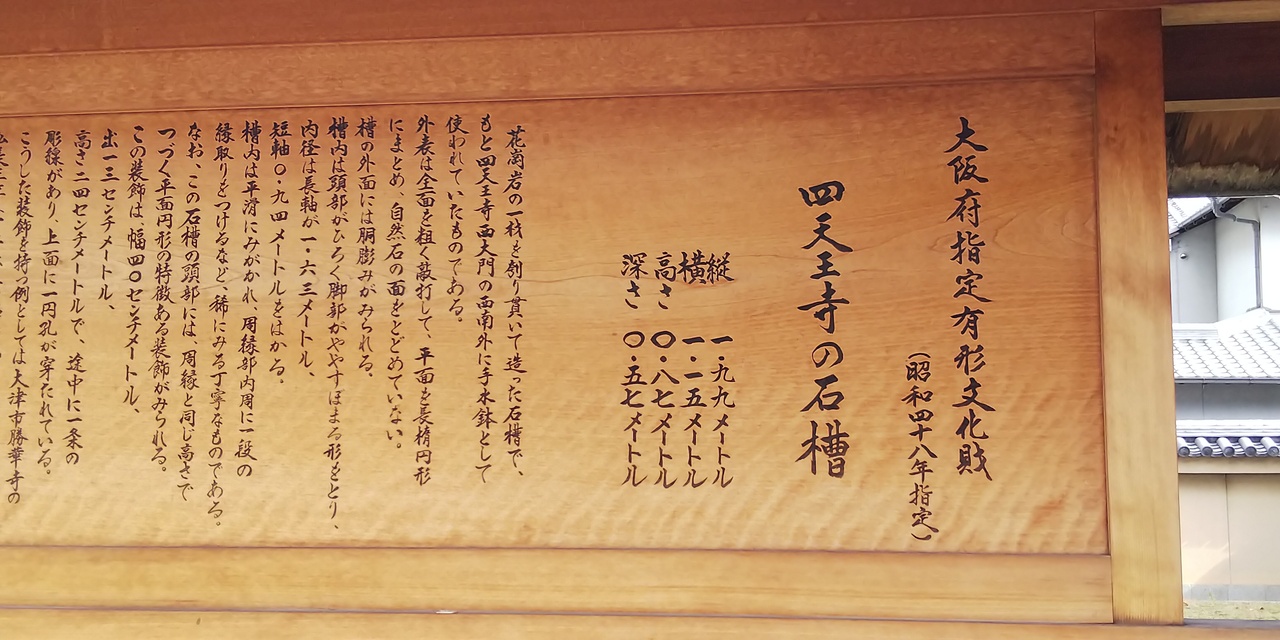 大阪府指定有形文化財
(昭和四十八年指定)
四天王寺の石槽
縦 一・九九メートル
横 一・一五メートル
高さ 〇・八七メートル
深さ 〇・五七メートル
花崗岩の一材を刳り貫いて造った石槽で、
もと四天王寺西大門の西南外に手水鉢として
使われていたものである。
外表は全面を粗く敲打して、平面を長楕円形
にまとめ、自然石の面をとどめていない。
槽の外面には胴膨みがみられる。
槽内は頭部がひろく脚部がややすぼまる形をとり、
内径は長軸が一・六三メートル、
短軸〇・九四メートルをはかる。
槽内は平滑にみがかれ、周縁部内周に一段の
縁取りをつけるなど、稀にみる丁寧なものである。
なお、この石槽の頭部には、周縁と同じ高さで
つづく平面円形の特徴ある装飾がみられる。
この装飾は、幅四〇センチメートル、
出一三センチメートル、
高さ二四センチメートルで、途中に一条の
彫線があり、上面に一円孔が穿たれている。
こうした装飾を持つ例としては大津市勝華寺の